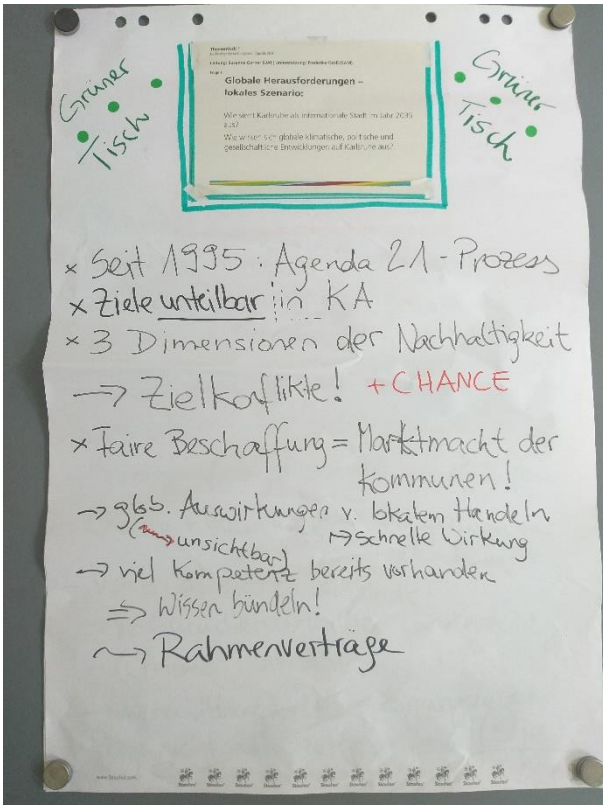 Grüner
Tisch
Grüner
Tisch
Globale Herausforderungen –
lokales Szenario:
Wie sieht Karlsruhe als internationale Stadt im Jahr 2035
aus?
Wie wirken sich globale klimatische, politische und
gesellschaftliche Entwicklungen auf Karlsruhe aus?
x Seit 1995: Agenda 21-Prozess
x Ziele unteilbar in KA
x 3 Dimensionen der Nachhaltigkeit
→ Zielkonflikte! + CHANCE
x Faire Beschaffung = Marktmacht der
Kommunen!
→ glob. Auswirkungen v. lokalem Handeln
(→ unsichtbar) → schnelle Wirkung
→ viel Kompetenz bereits vorhanden
⇒ Wissen bündeln!
→ Rahmenverträge
Staufen Staufen Staufen Staufen Staufen Staufen Staufen Staufen Staufen